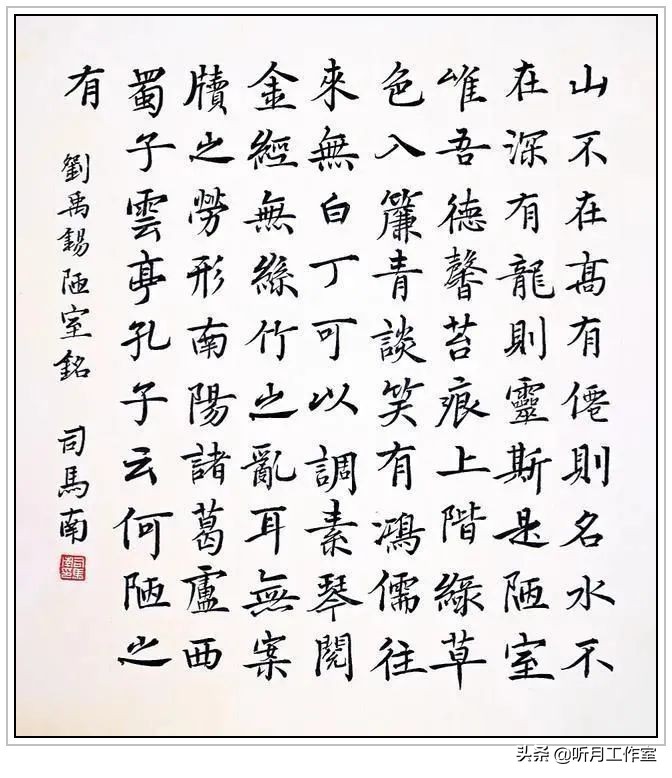 山不在髙有僊則名水不
在深有龍則靈斯是陋室
惟吾德馨苔痕上階綠草
色入簾青談笑有鴻儒往
來無白丁可以調素琴閱
金經無絲竹之亂耳無案
牘之勞形南陽諸葛廬西
蜀子雲亭孔子云何陋之
有
劉禹錫陋室銘 司馬南
头条 @听月工作室